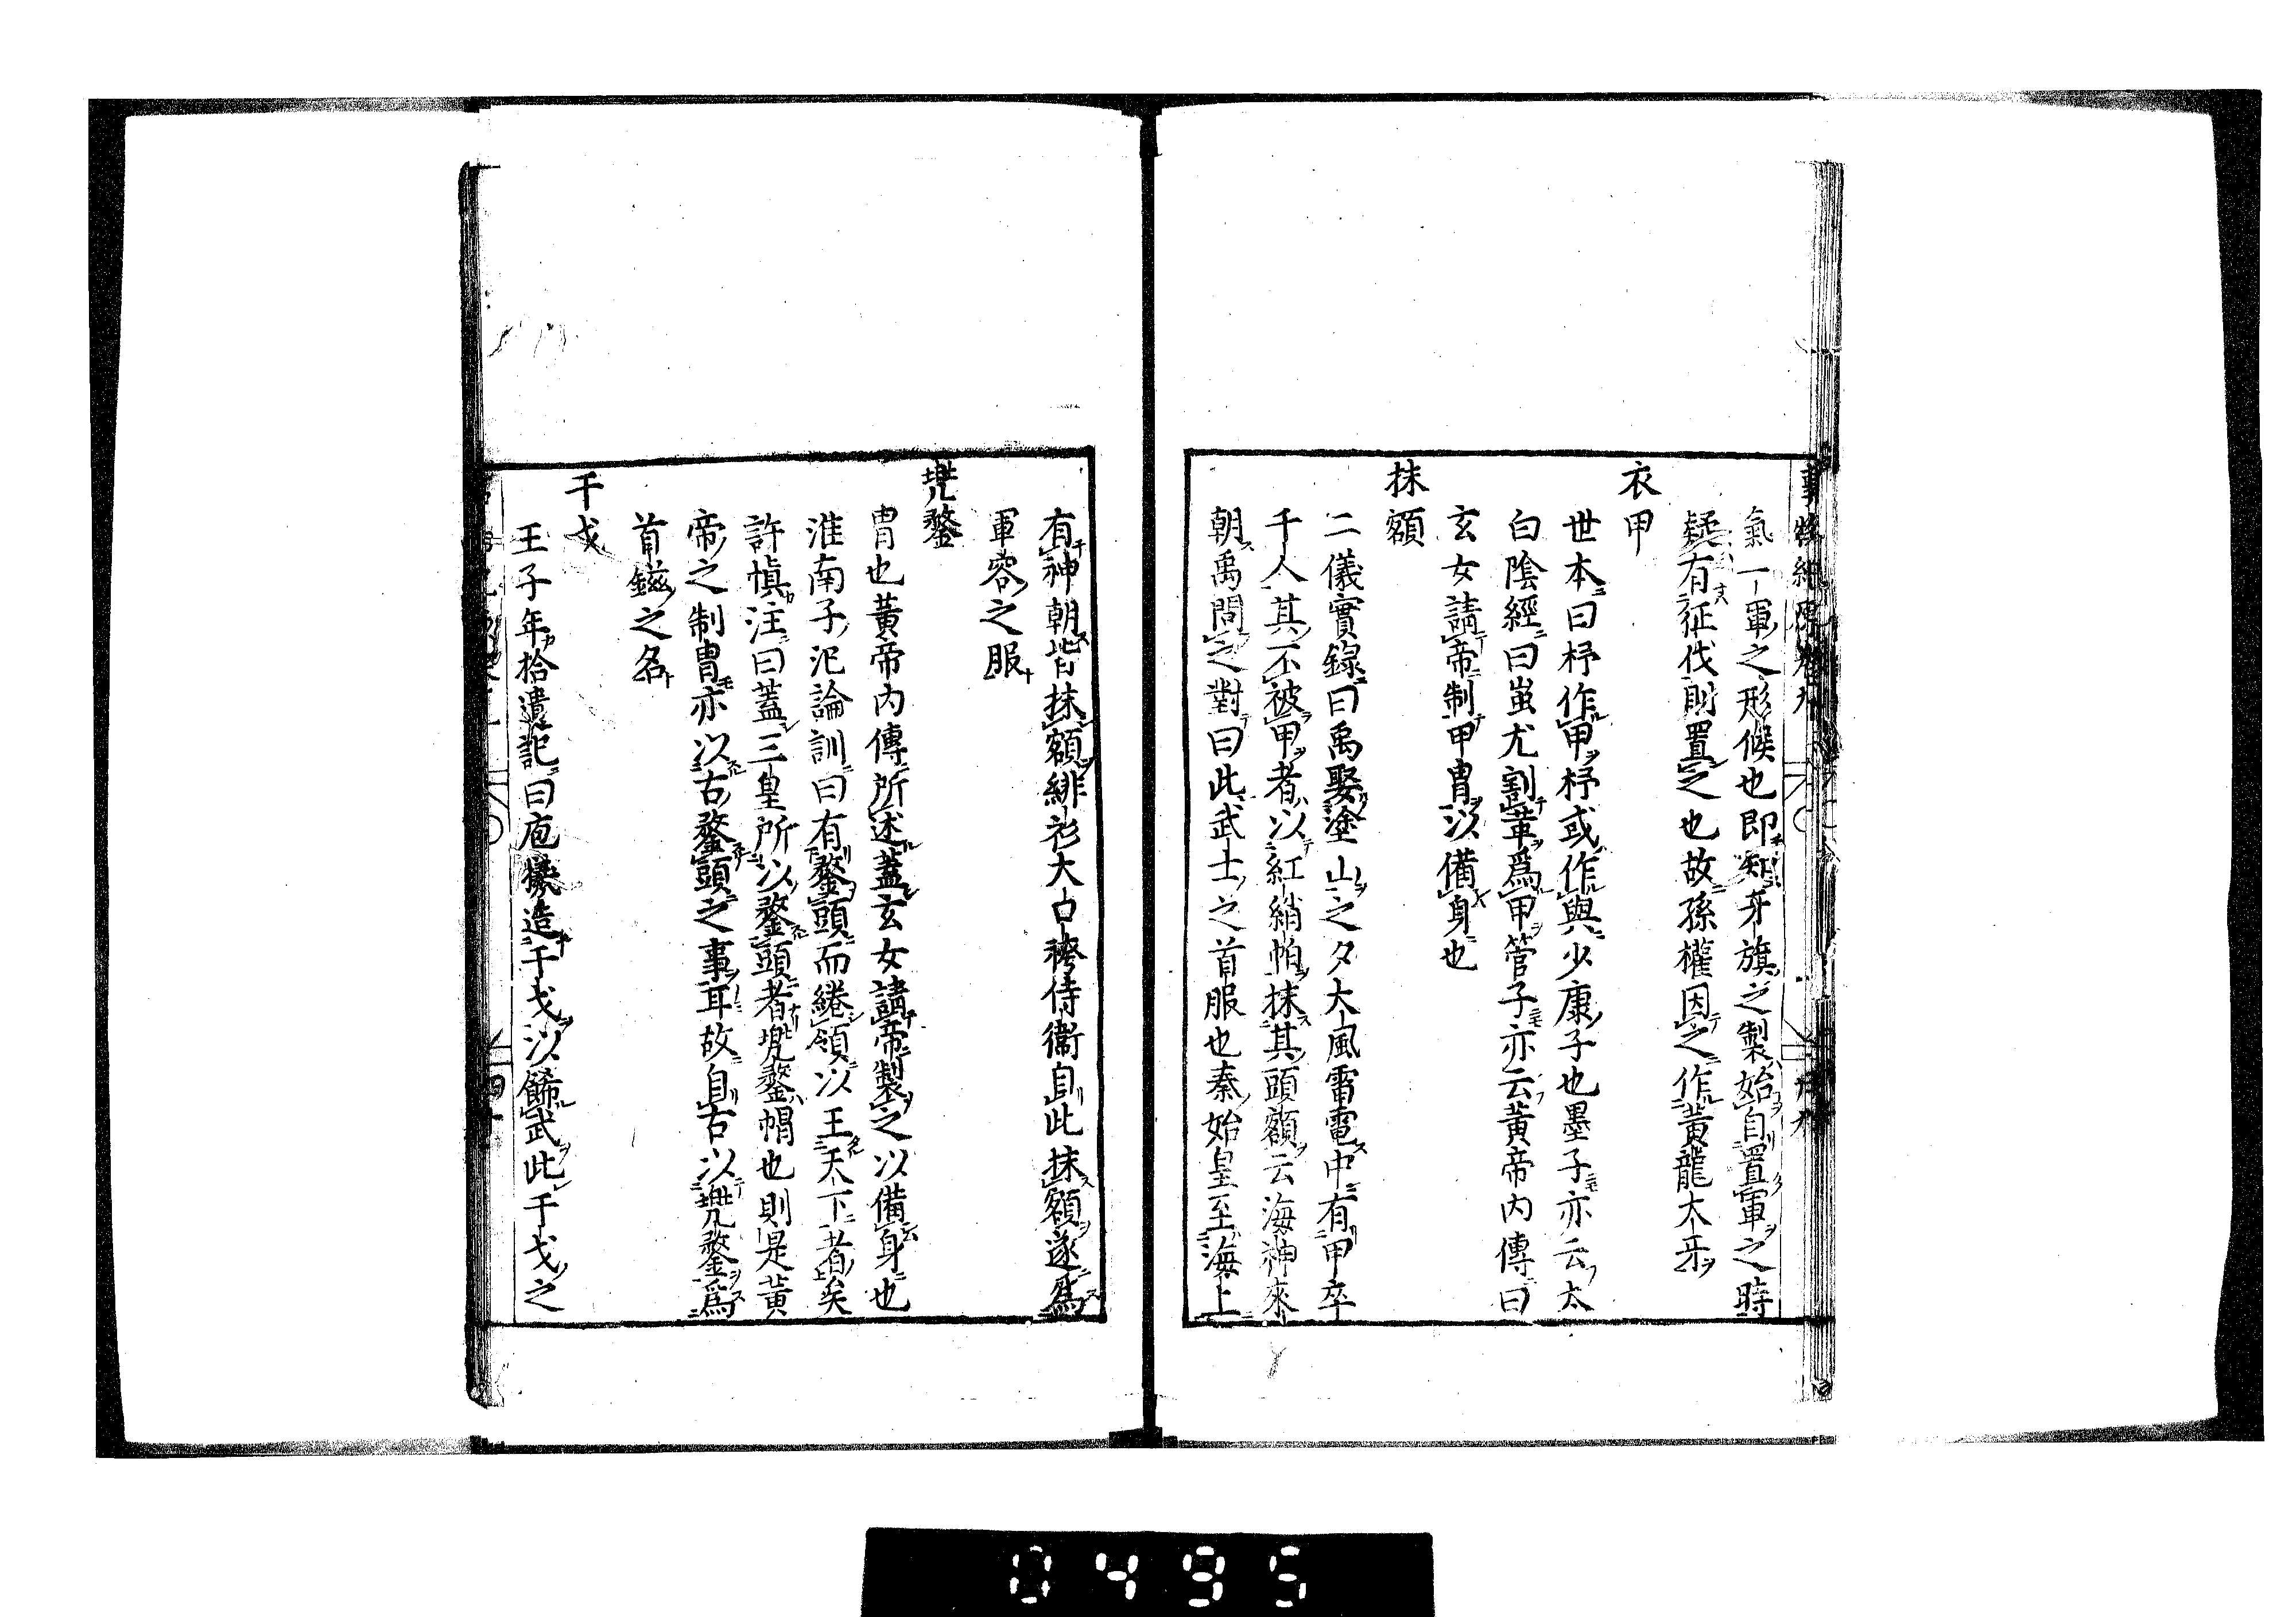 氣一軍之形候也即知牙旗之製始自置軍之時
疑有征伐則置之也故孫權因之作黃龍大牙
衣甲
世本曰杼作甲杼或作與少康子也墨子亦云太
白陰經曰蚩尤割革爲甲管子亦云黃帝內傳曰
玄女請帝制甲冑以備身也
抹額
二儀實錄曰禹娶塗山之夕大風雷電中有甲卒
千人其不被甲者以紅綃帕抹其頭額云海神來
朝禹問之對曰此武士之首服也秦始皇至海上
有神朝皆抹額緋衫大口袴侍衞自此抹額遂爲
軍容之服
兠鍪
冑也黃帝內傳所述蓋玄女請帝製之以備身也
淮南子氾論訓曰有鍪頭而綣領以王天下者矣
許慎注曰蓋三皇所以鍪頭者兠鍪帽也則是黃
帝之制冑亦以古鍪頭之事耳故自古以兠鍪爲
首鎧之名
干戈
王子年拾遺記曰庖犧造干戈以餙武此干戈之
0495